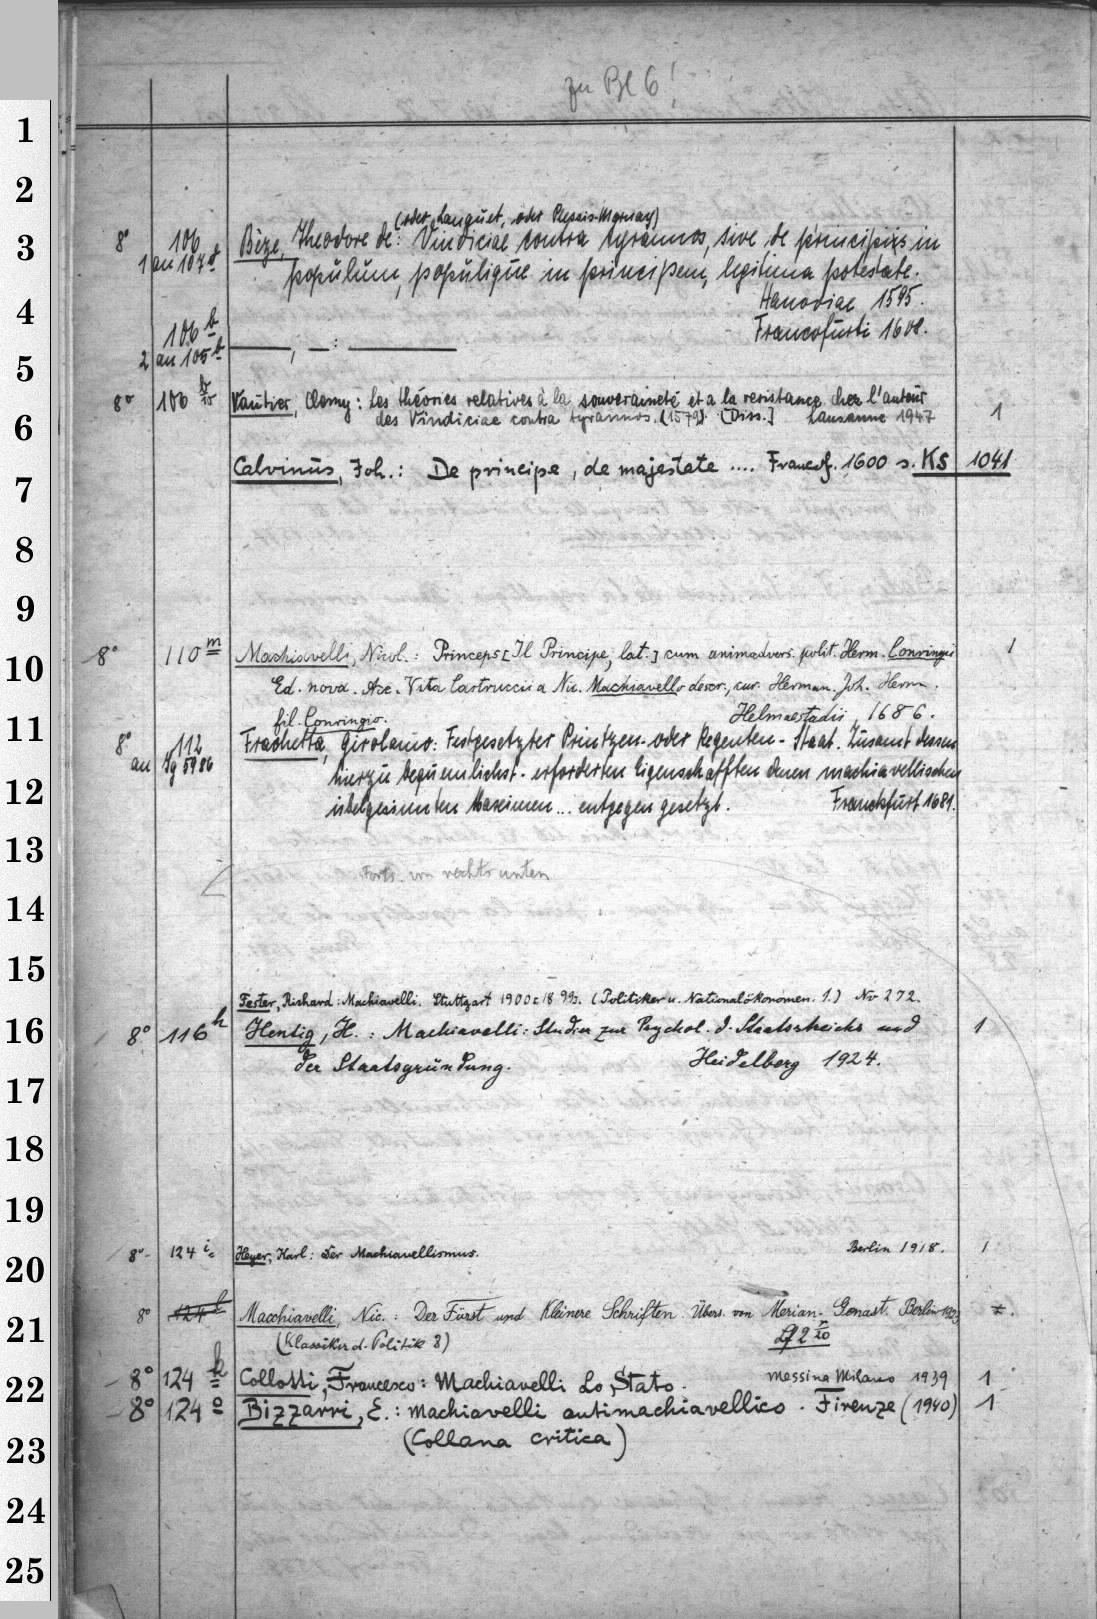 zu Bl 6!
1
2
(oder Languet, oder Plessis-Mornay)
3 8° 106 Bèze, Theodore de: Vindiciae contra tyrannos, sive de principis in
1 an 107 d populum, populique in principem, legitima potestate.
Hanoviae 1595.
4 106 b Francofurti 1608.
2 an 105 b ——, — : ——
5
8° 106 Vautier, Clemy: Les théories relatives à la souveraineté et a la resistance chez l'auteur
6 des Vindiciae contra tyrannos. (1579) [Diss.] Lausanne 1947 1
Calvinus, Joh.: De principe, de majestate .... Francof. 1600 s. KS 1041
7
8
9
10 8° 110 m Machiavelli, Nicol.: Princeps [Il Principe, lat.] cum animadvers. polit. Herm. Conringii 1
Ed. nova. Acc. Vita Castruccii a Nic. Machiavello descr., cur. Herman. Joh. Herm.
fil. Conringio. Helmaestadii, 1686.
11 8° 112 Frachetta, Girolamo: Festgesetzter Printzen- oder Regenten-Staat. Zusamt dessen
an 5986 hierzu bequemlichst-erforderten Eigenschafften denen machiavellischen
12 übelgesinnten Maximen... entgegen gesetzt. Franckfurt 1681.
13
Forts. von rechts unten
14
15
Fester, Richard: Machiavelli. Stuttgart 1900 (Politiker u. Nationalökonomen. 1.) No 272.
16 8° 116 h Hentig, H.: Machiavelli: Studien zur Psychol. d. Staatsstreichs und 1
der Staatsgründung. Heidelberg 1924.
17
18
19
20 8° 124 i Heyer, Karl: Der Machiavellismus. Berlin 1918. 1
8° 124 l Macchiavelli, Nic.: Der Fürst und Kleinere Schriften. Übers. von Merian-Genast. Berlin 1923
21 (Klassiker d. Politik 8)
22 8° 124 k Collotti, Francesco: Machiavelli Lo Stato. Messina Milano 1939 1
8° 124 o Bizzarri, E.: Machiavelli antimachiavellico. Firenze (1940) 1
23 (Collana critica)
24
25